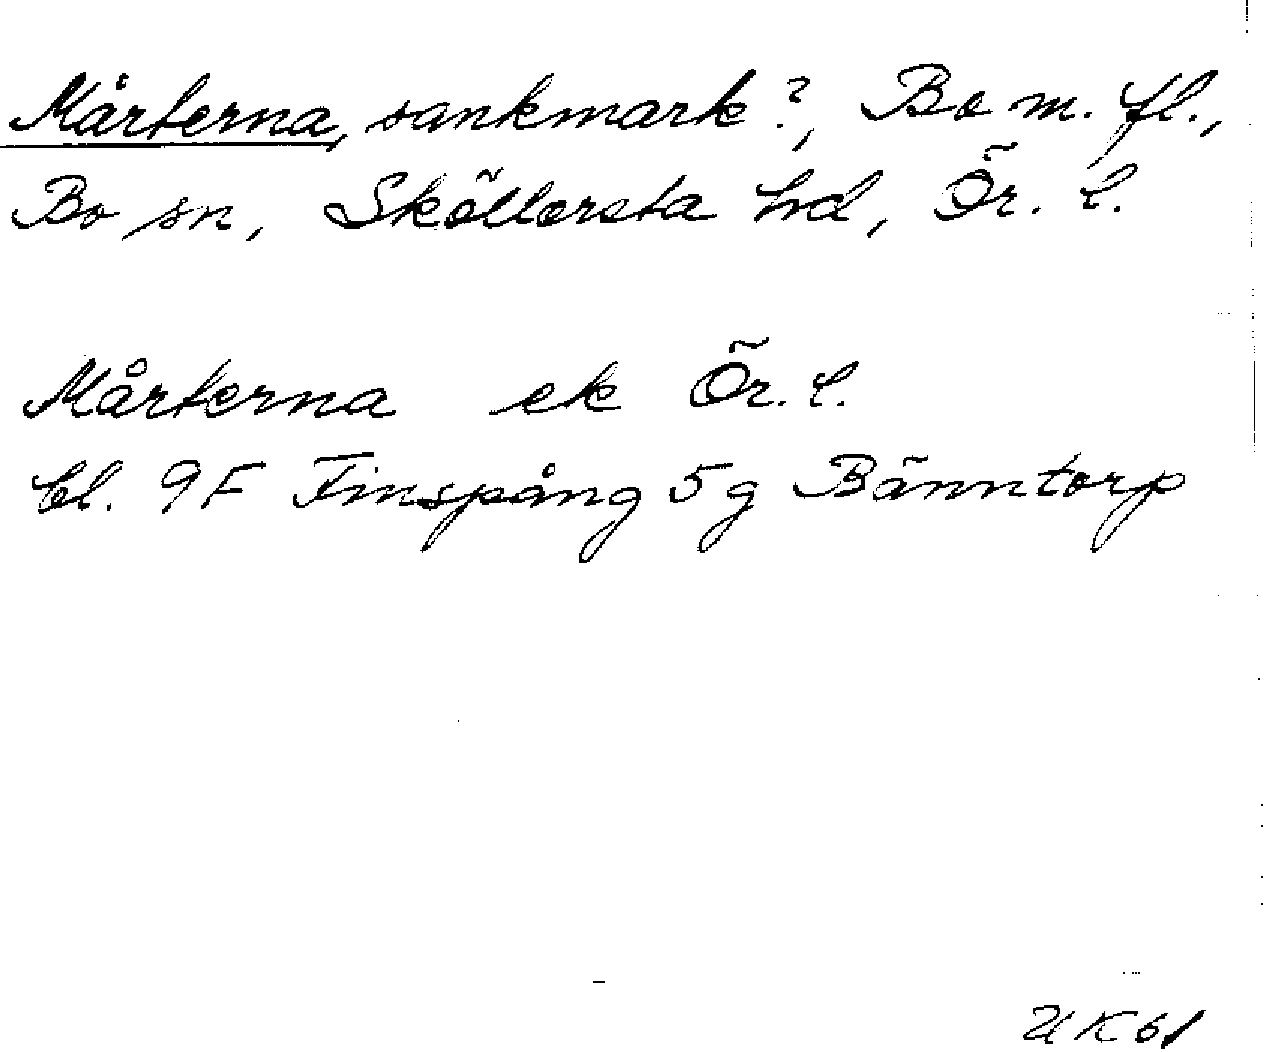 Mårterna, sankmark?, Bo m. fl.,
Bo sn, Sköllersta hd, Ör. l.
Mårterna ek Ör. l.
bl. 9F Finspång 5g Bänntorp
UK61